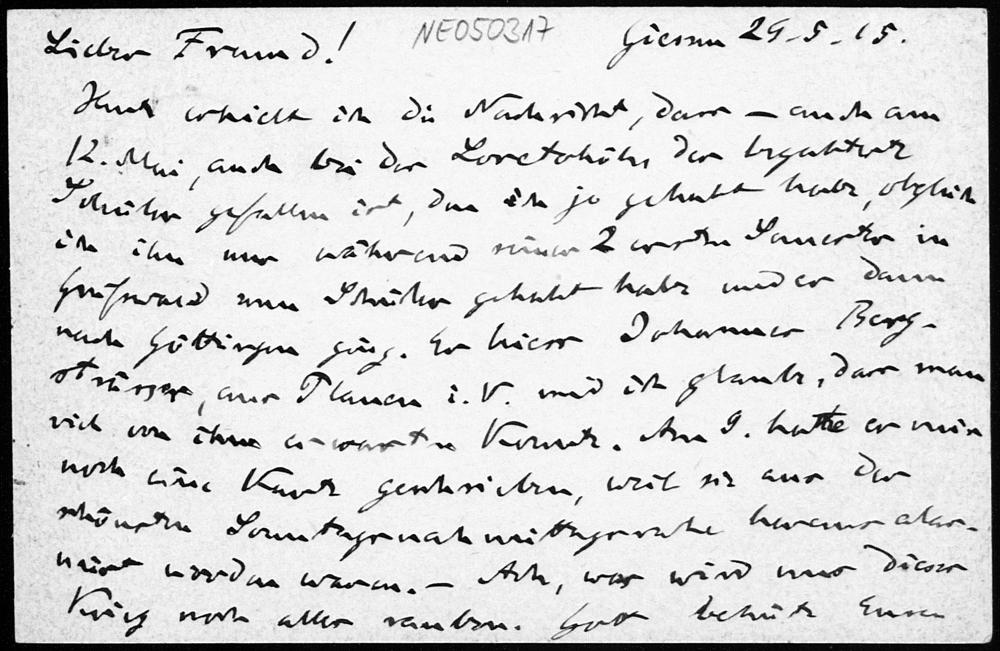 Lieber Freund! NE050317 Giessen 29.5.15.
Heute erhielt ich die Nachricht, dass – auch am
12. Mai, auch bei der Lorettohöhe, der begabteste
Schüler gefallen ist, den ich je gehabt habe, obgleich
ich ihn nur während seiner 2 ersten Semester in
Greifswald zum Schüler gehabt habe und er dann
nach Göttingen ging. Er hiess Johannes Berg-
strässer, aus Plauen i. V. und ich glaube, dass man
viel von ihm erwarten konnte. Am 9. hatte er mir
noch eine Karte geschrieben, weil sie aus der
schönsten Sonntagsnachmittagsruhe heraus alar-
miert worden waren. – Ach, was wird uns dieser
Krieg noch alles rauben. Gott behüte Euren